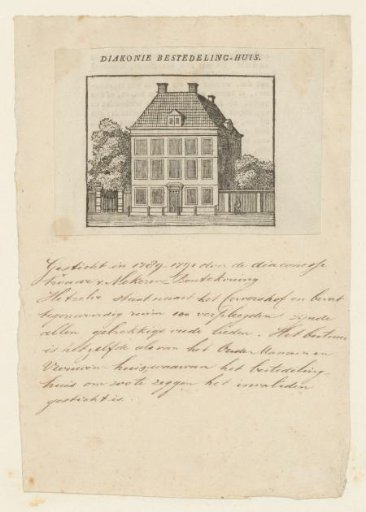 DIAKONIE BESTEDELING-HUIS.
Gesticht in 1789-1791 door de diaconesse
Hetzelve staat naast het Corvershof en bevat
tegenwoordig ruim 100 verpleegden zijnde
allen gebrekkige oude lieden. Het bestuur
is hetzelfde als van het Oude Mannen en
Vrouwen huis, waarvan het bestedeling
huis om zoo te zeggen het invaliden
gesticht is.